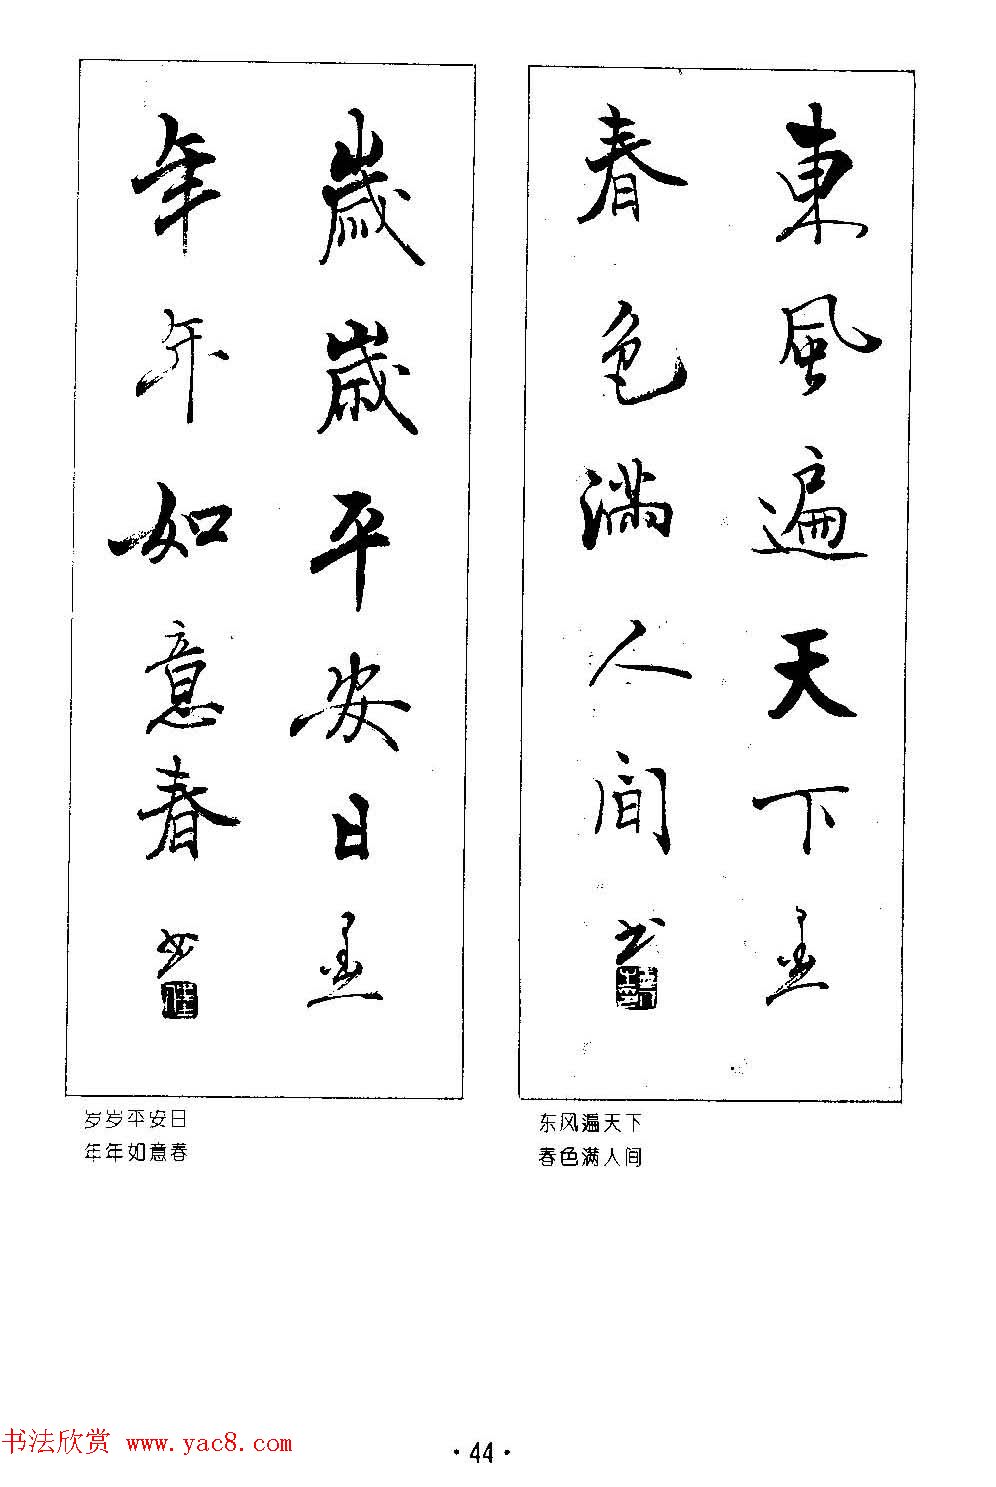 東風遍天下
春色滿人间
书
歲歲平安日
年年如意春
书
东风遍天下
春色满人间
岁岁平安日
年年如意春
书法欣赏 www.yac8.com
·44·